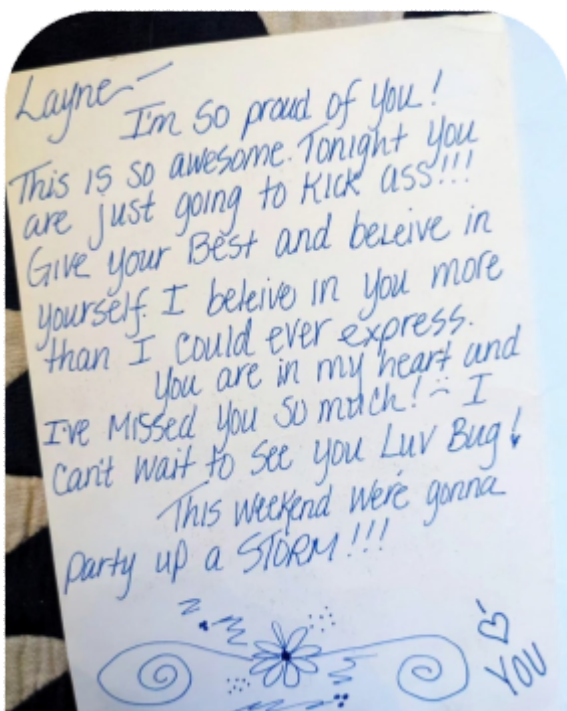 Layne -
I'm so proud of you!
This is so awesome. Tonight you
are just going to kick ass!!!
Give your Best and beleive in
yourself. I beleive in you more
than I could ever express.
you are in my heart and
I've Missed you so much! I
can't wait to see you Luv Bug!
This weekend we're gonna
party up a STORM!!!
YOU